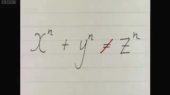 BBC
xⁿ + yⁿ ≠ zⁿ